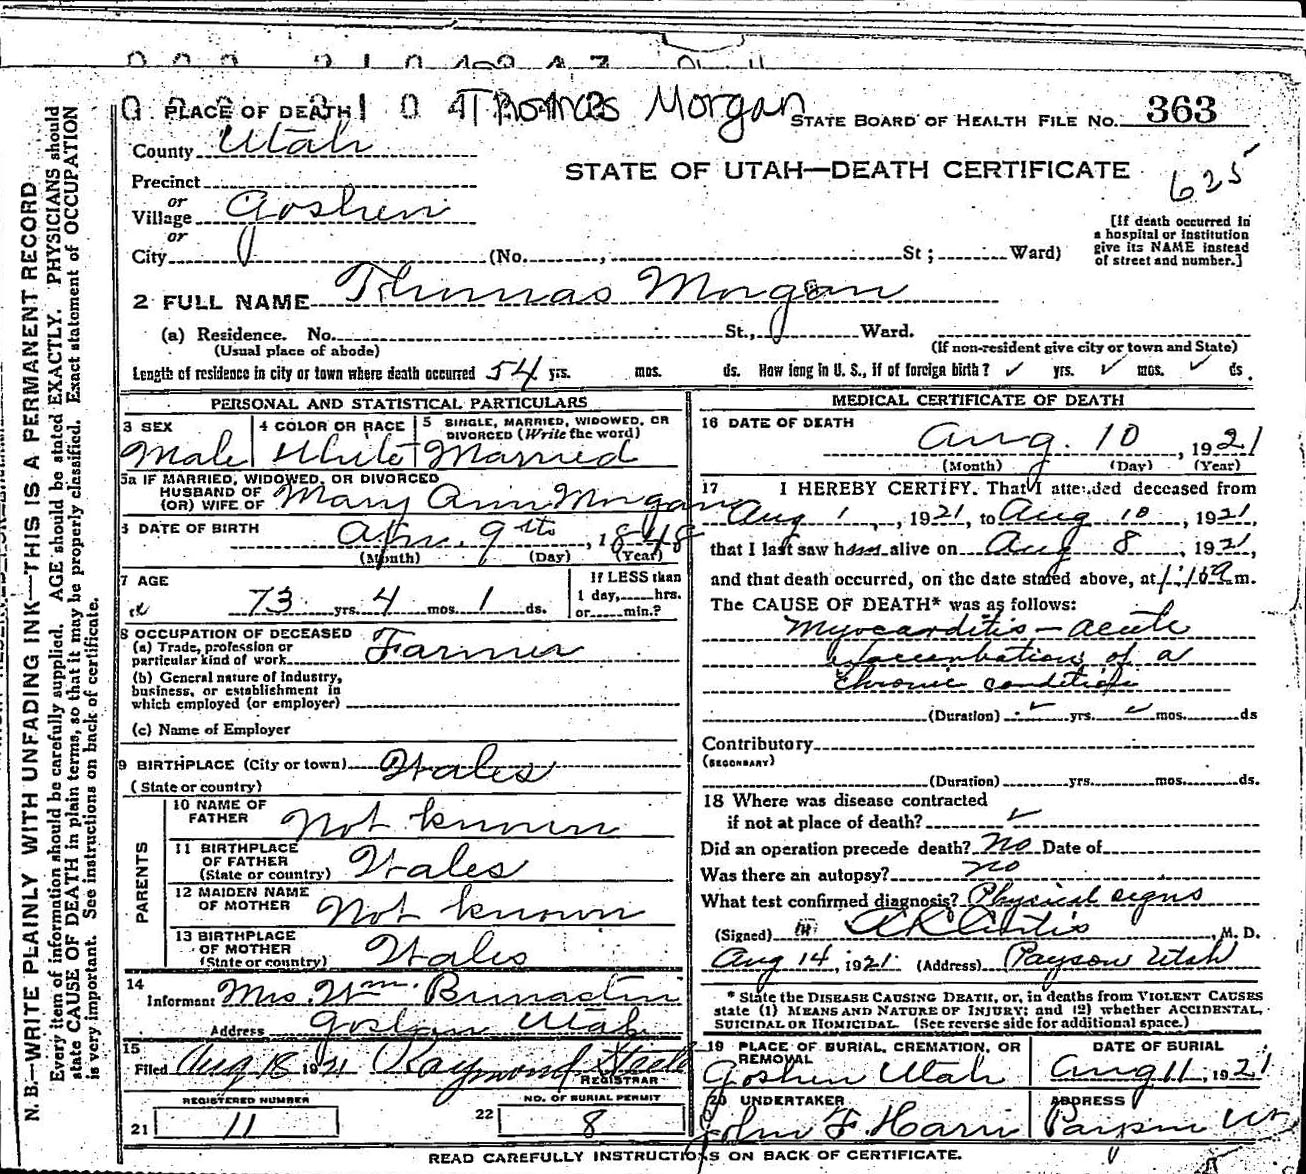 Thomas Morgan
PLACE OF DEATH
STATE BOARD OF HEALTH FILE NO. 363
County Utah
STATE OF UTAH—DEATH CERTIFICATE
625
Precinct
or
Village Goshen
or
City (No. , St ; Ward)
[If death occurred in
a hospital or institution
give its NAME instead
of street and number.]
2 FULL NAME Thomas Morgan
(a) Residence. No. St., Ward.
(Usual place of abode)
(If non-resident give city or town and State)
Length of residence in city or town where death occurred 54 yrs. mos. ds. How long in U. S., if of foreign birth? ✓ yrs. ✓ mos. ✓ ds.
PERSONAL AND STATISTICAL PARTICULARS
3 SEX
Male
4 COLOR OR RACE
White
5 SINGLE, MARRIED, WIDOWED, OR
DIVORCED (Write the word)
Married
5a IF MARRIED, WIDOWED, OR DIVORCED
HUSBAND OF
(OR) WIFE OF Mary Ann Morgan
6 DATE OF BIRTH Apr. 9th, 1848
(Month) (Day) (Year)
7 AGE
73 yrs. 4 mos. 1 ds.
If LESS than
1 day, hrs.
or min.?
8 OCCUPATION OF DECEASED
(a) Trade, profession or
particular kind of work Farmer
(b) General nature of industry,
business, or establishment in
which employed (or employer)
(c) Name of Employer
9 BIRTHPLACE (City or town) Wales
(State or country)
PARENTS
10 NAME OF
FATHER Not known
11 BIRTHPLACE
OF FATHER
(State or country) Wales
12 MAIDEN NAME
OF MOTHER Not known
13 BIRTHPLACE
OF MOTHER
(State or country) Wales
14
Informant Mrs. Wm.
Address Goshen Utah
15
Filed Aug 18 1921 Raymond Steele
REGISTRAR
REGISTERED NUMBER
21 11
NO. OF BURIAL PERMIT
22 8
MEDICAL CERTIFICATE OF DEATH
16 DATE OF DEATH
Aug. 10, 1921
(Month) (Day) (Year)
17 I HEREBY CERTIFY. That I attended deceased from
Aug 1, 1921, to Aug 10, 1921,
that I last saw him alive on Aug 8, 1921,
and that death occurred, on the date stated above, at m.
The CAUSE OF DEATH* was as follows:
Myocarditis — acute
exacerbation of a
chronic condition
(Duration) ✓ yrs. ✓ mos. ds
Contributory
(SECONDARY)
(Duration) yrs. mos. ds.
18 Where was disease contracted
if not at place of death? ✓
Did an operation precede death? no Date of
Was there an autopsy? no
What test confirmed diagnosis? Physical signs
(Signed) Curtis, M. D.
Aug 14, 1921 (Address) Payson Utah
* State the DISEASE CAUSING DEATH, or, in deaths from VIOLENT CAUSES
state (1) MEANS AND NATURE OF INJURY; and (2) whether ACCIDENTAL,
SUICIDAL or HOMICIDAL. (See reverse side for additional space.)
19 PLACE OF BURIAL, CREMATION, OR
REMOVAL
Goshen Utah
DATE OF BURIAL
Aug 11, 1921
20 UNDERTAKER
John F.
ADDRESS
Payson Ut
READ CAREFULLY INSTRUCTIONS ON BACK OF CERTIFICATE.
N. B.—WRITE PLAINLY WITH UNFADING INK—THIS IS A PERMANENT RECORD
Every item of information should be carefully supplied. AGE should be stated EXACTLY. PHYSICIANS should
state CAUSE OF DEATH in plain terms, so that it may be properly classified. Exact statement of OCCUPATION
is very important. See instructions on back of certificate.